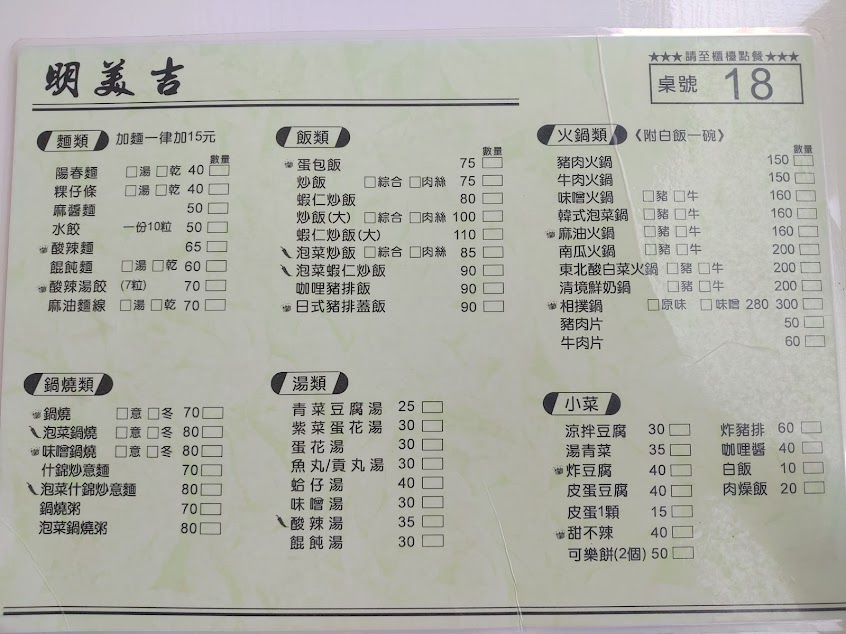 明美吉
★★★請至櫃檯點餐★★★
桌號 18
麵類 加麵一律加15元
數量
陽春麵 □湯 □乾 40
粿仔條 □湯 □乾 40
麻醬麵 50
水餃 一份10粒 50
酸辣麵 65
餛飩麵 □湯 □乾 60
酸辣湯餃 (7粒) 70
麻油麵線 □湯 □乾 70
飯類
數量
蛋包飯 75
炒飯 □綜合 □肉絲 75
蝦仁炒飯 80
炒飯(大) □綜合 □肉絲 100
蝦仁炒飯(大) 110
泡菜炒飯 □綜合 □肉絲 85
泡菜蝦仁炒飯 90
咖哩豬排飯 90
日式豬排蓋飯 90
火鍋類 《附白飯一碗》
數量
豬肉火鍋 150
牛肉火鍋 150
味噌火鍋 □豬 □牛 160
韓式泡菜鍋 □豬 □牛 160
麻油火鍋 □豬 □牛 160
南瓜火鍋 □豬 □牛 200
東北酸白菜火鍋 □豬 □牛 200
清境鮮奶鍋 □豬 □牛 200
相撲鍋 □原味 □味噌 280 300
豬肉片 50
牛肉片 60
鍋燒類
鍋燒 □意 □冬 70
泡菜鍋燒 □意 □冬 80
味噌鍋燒 □意 □冬 80
什錦炒意麵 70
泡菜什錦炒意麵 80
鍋燒粥 70
泡菜鍋燒粥 80
湯類
青菜豆腐湯 25
紫菜蛋花湯 30
蛋花湯 30
魚丸/貢丸湯 30
蛤仔湯 40
味噌湯 30
酸辣湯 35
餛飩湯 30
小菜
涼拌豆腐 30
湯青菜 35
炸豆腐 40
皮蛋豆腐 40
皮蛋1顆 15
甜不辣 40
可樂餅(2個) 50
炸豬排 60
咖哩醬 40
白飯 10
肉燥飯 20